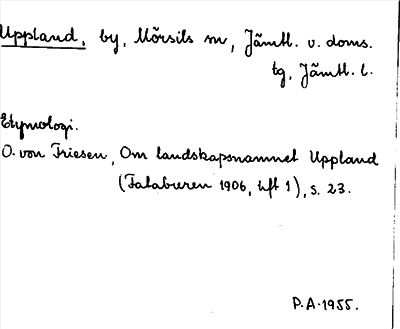 Uppland, by, Mörsils sn, Jämtl. v. doms.
tg, Jämtl. l.
Etymologi.
O. von Friesen, Om landskapsnamnet Uppland
(Fataburen 1906, hft 1), s. 23.
P.A. 1955.